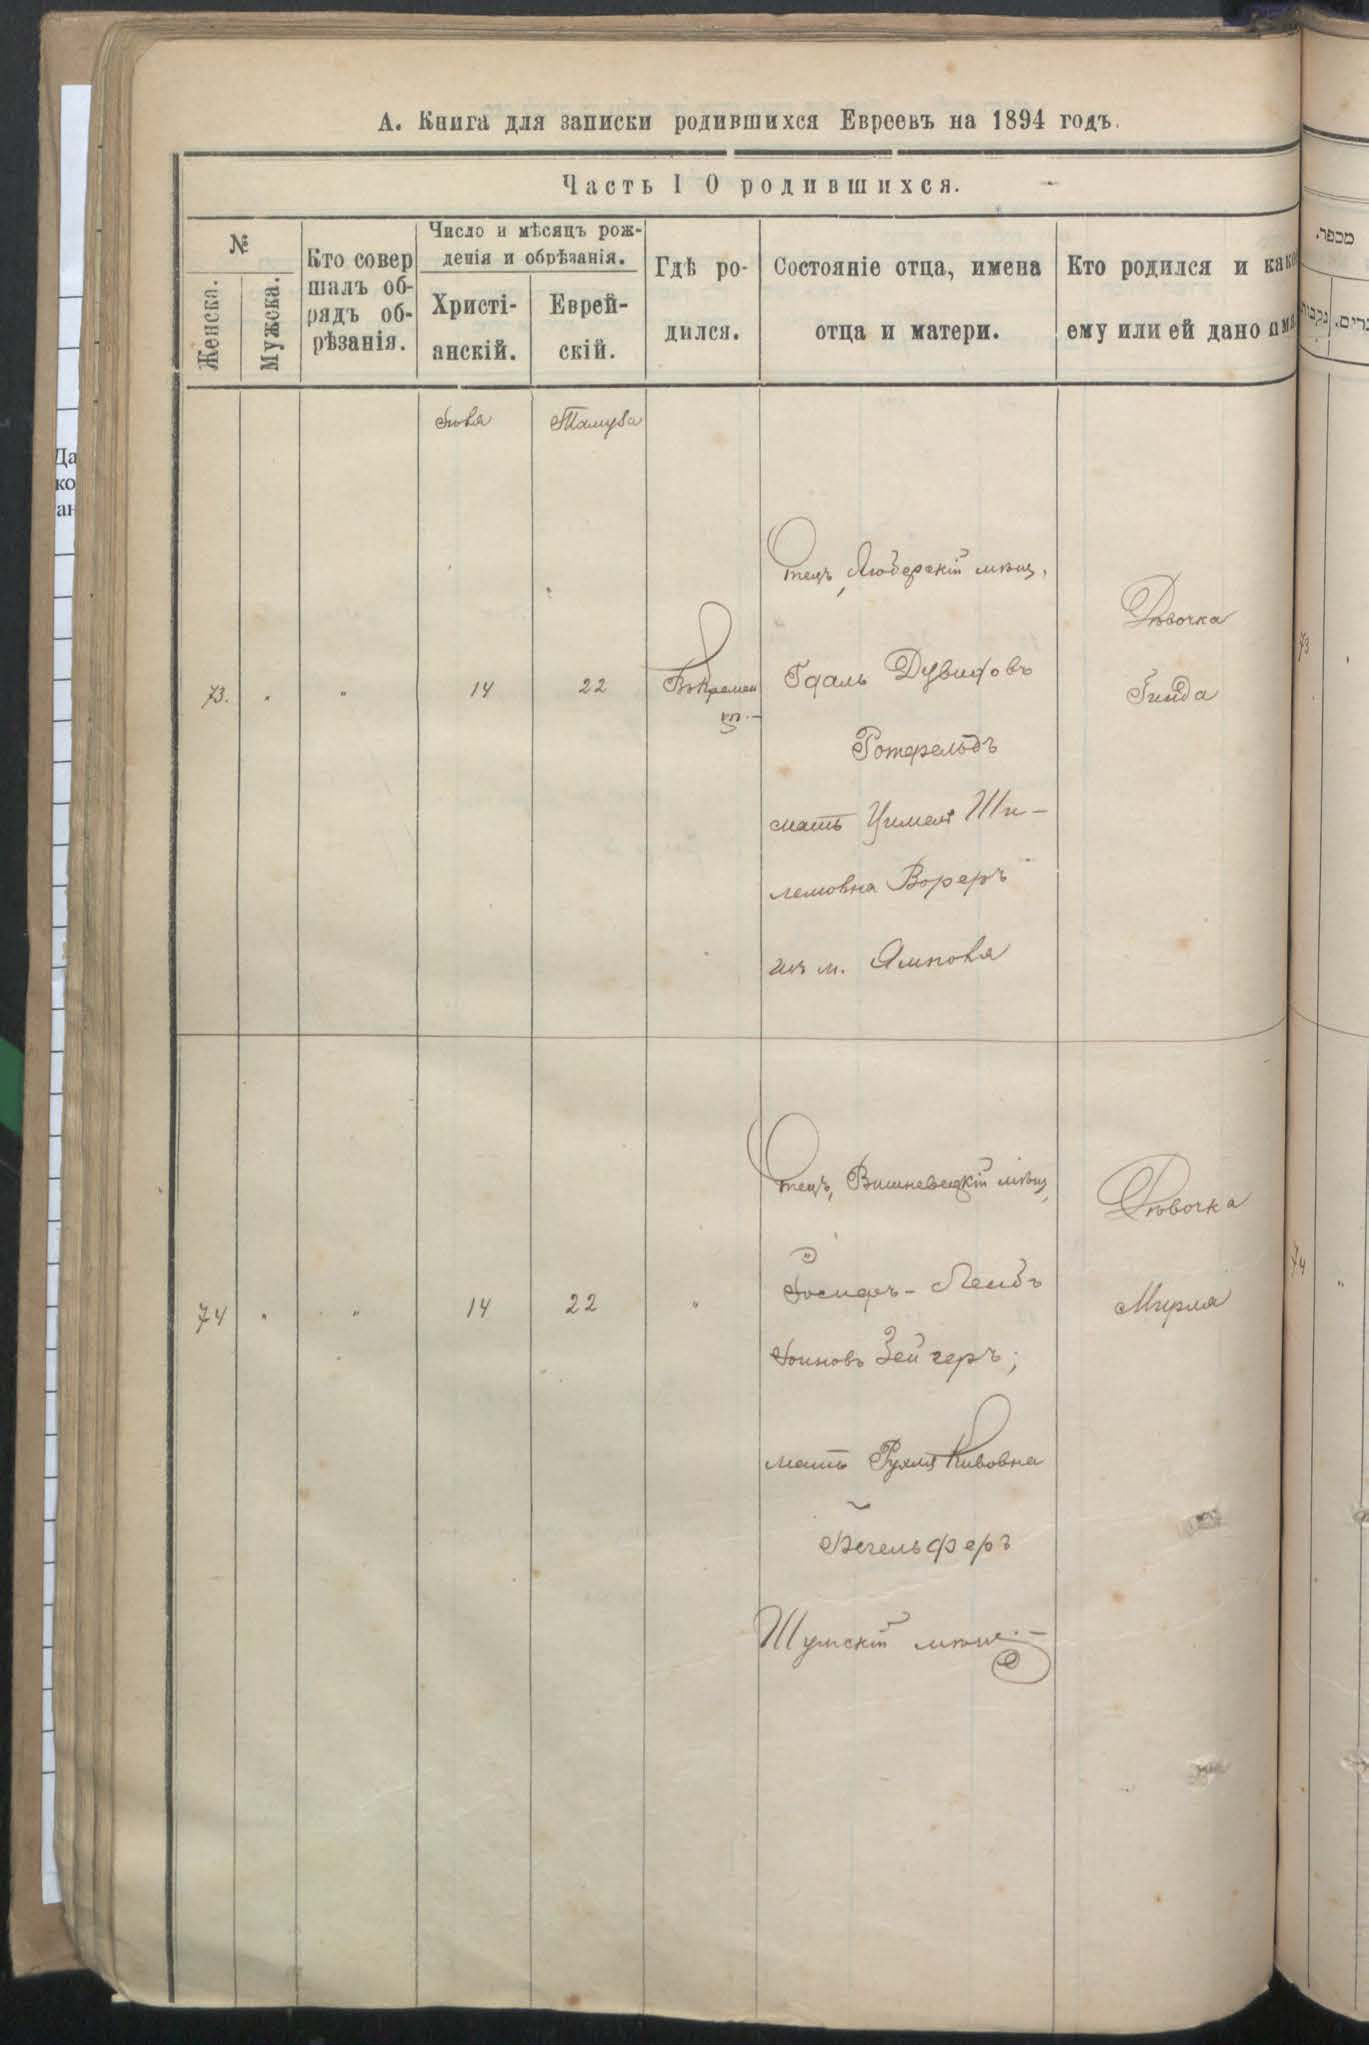 А. Книга для записки родившихся Евреевъ на 1894 годъ.
Часть I О родившихся.
№
Женска.
Мужска.
Кто совер
шалъ об-
рядъ об-
рѣзанія.
Число и мѣсяцъ рож-
денія и обрѣзанія.
Христі-
анскій.
Еврей-
скій.
Гдѣ ро-
дился.
Состояніе отца, имена
отца и матери.
Кто родился и како
ему или ей дано има
Іюля
Тамуза
73.
"
"
14
22
Въ Кремен
цѣ.-
Отецъ, мѣщ.
Гдаль Дувидовъ
Ротфельдъ
мать Цимеля Ши-
лемовна
изъ м. Ямполя
Дѣвочка
Гинда
74
"
"
14
22
"
Отецъ, Вишневецкій мѣщ,
Іосифъ-Лейбъ
Зейгеръ;
мать Рухля Кивовна
Шумскій мѣщ.-
Дѣвочка
Мирля
מכפר.
נקבות
73
74
"
Да
ко
ан